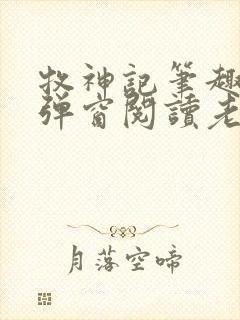 牧神記筆趣
弹窗閱讀老
月落空啼